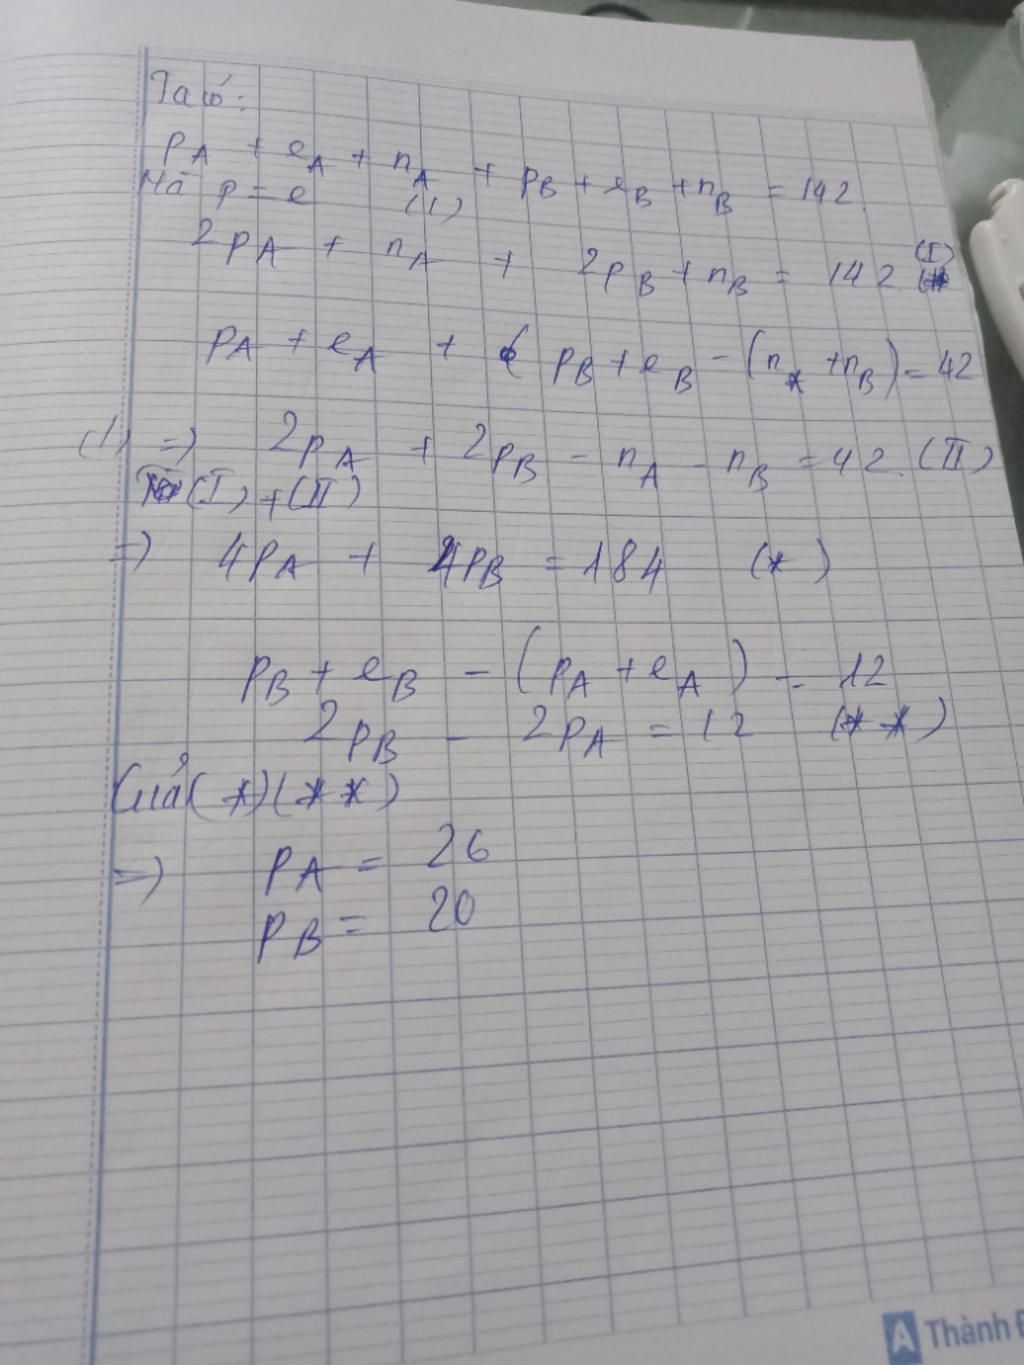 Ta có:
pA + eA + nA + pB + eB + nB = 142.
Mà p = e (1)
2pA + nA + 2pB + nB = 142 (I)
pA + eA + pB + eB - (nA + nB) = 42
(1) => 2pA + 2pB - nA - nB = 42. (II)
(I) + (II)
=> 4pA + 4pB = 184 (*)
pB + eB - (pA + eA) = 12
2pB - 2pA = 12 (**)
Giải (*)(**)
=> pA = 26
pB = 20
A Thành